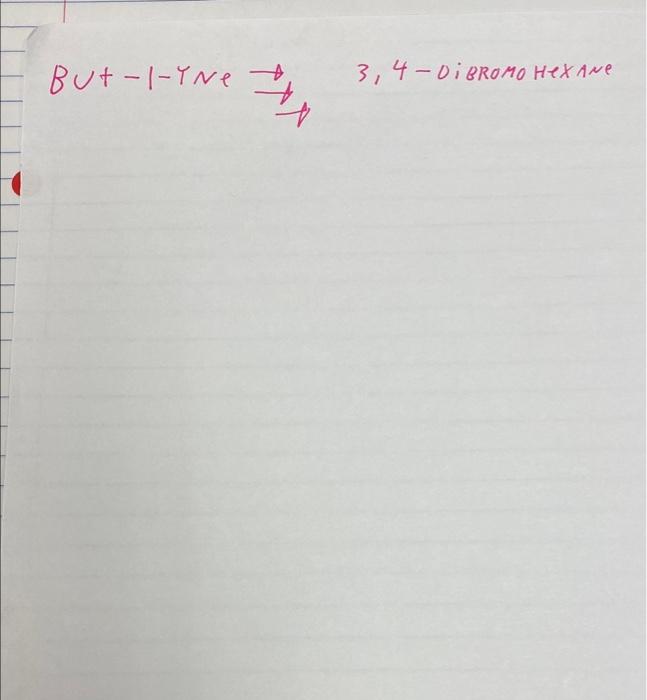 BUt-1-YNe 3,4-DiBROMO HeXANe